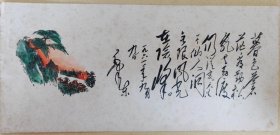 暮色苍
茫看劲松
乱云飞渡
仍从容天生
一个仙人洞
无限风光
在险峰
一九六一年九月
九日